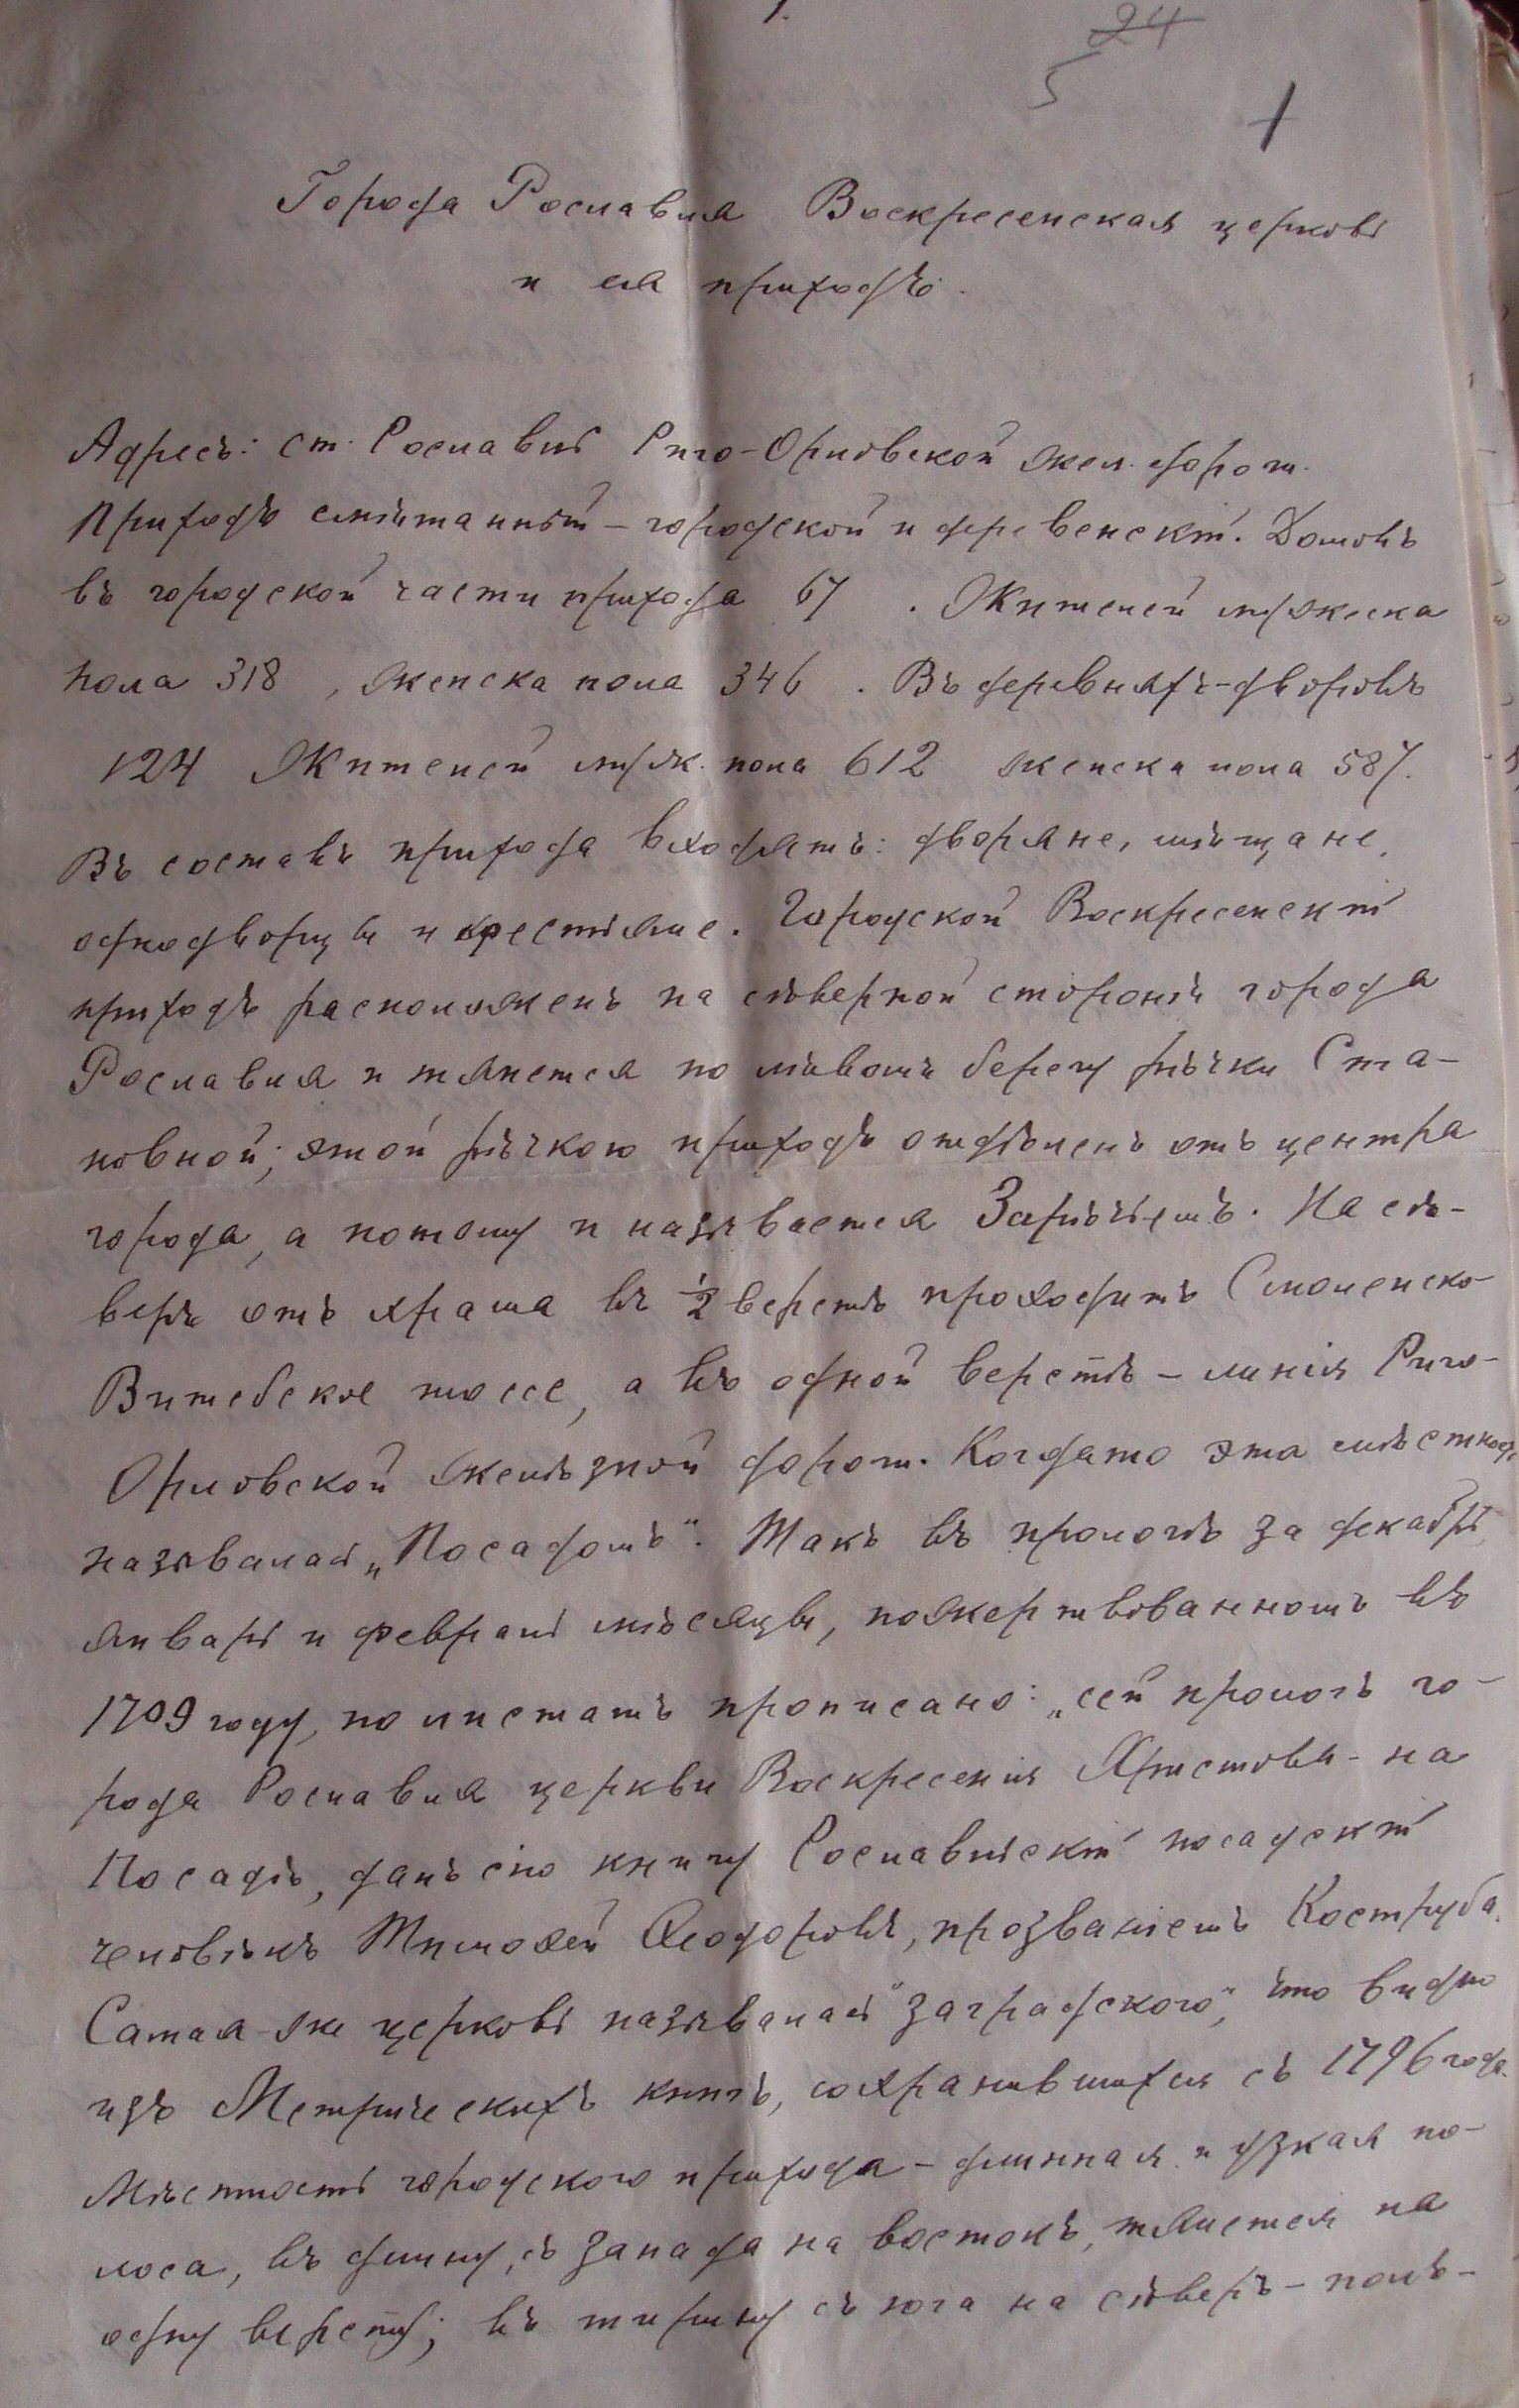 24
5
1
Города Рославля Воскресенская церковь
и ея приходъ.
Адресъ: ст. Рославль Риго-Орловской жел. дорог.
Приходъ смѣшанный – городской и деревенскій. Домовъ
въ городской части прихода 67 . Жителей мужеска
пола 318 , женска пола 346 . Въ деревняхъ-дворовъ
124 Жителей муж. пола 612 женска пола 587.
Въ составъ прихода входятъ: дворяне, мѣщане,
однодворцы и крестьяне. Городской Воскресенскій
приходъ расположенъ на сѣверной сторонѣ города
Рославля и тянется по лѣвому берегу рѣчки Ста-
новной; этой рѣчкою приходъ отдѣленъ отъ центра
города, а потому и называется Зарѣчьемъ. На сѣ-
веръ отъ храма въ ½ верстѣ проходитъ Смоленско-
Витебское шоссе, а въ одной верстѣ – линія Риго-
Орловской желѣзной дорог. Когдато эта мѣстность
называлась „Посадомъ“. Такъ въ прологѣ за декабрь
январь и февраль мѣсяцы, пожертвованномъ въ
1709 году, по листамъ прописано: „сей прологъ го-
рода Рославля церкви Воскресенія Христовы- на
Посадѣ, далъ сію книгу Рославльскій посадскій
человѣкъ Тимоѳей Ѳеодоровъ, прозваніемъ Коструба.
Самая-же церковь называлась "заградского", что видно
изъ Метрическихъ книгъ, сохранившихся съ 1796 года.
Мѣстность городского прихода – длинная и узкая по-
лоса, въ длину, съ запада на востокъ, тянется на
одну версту; въ ширину съ юга на сѣверъ – полъ-